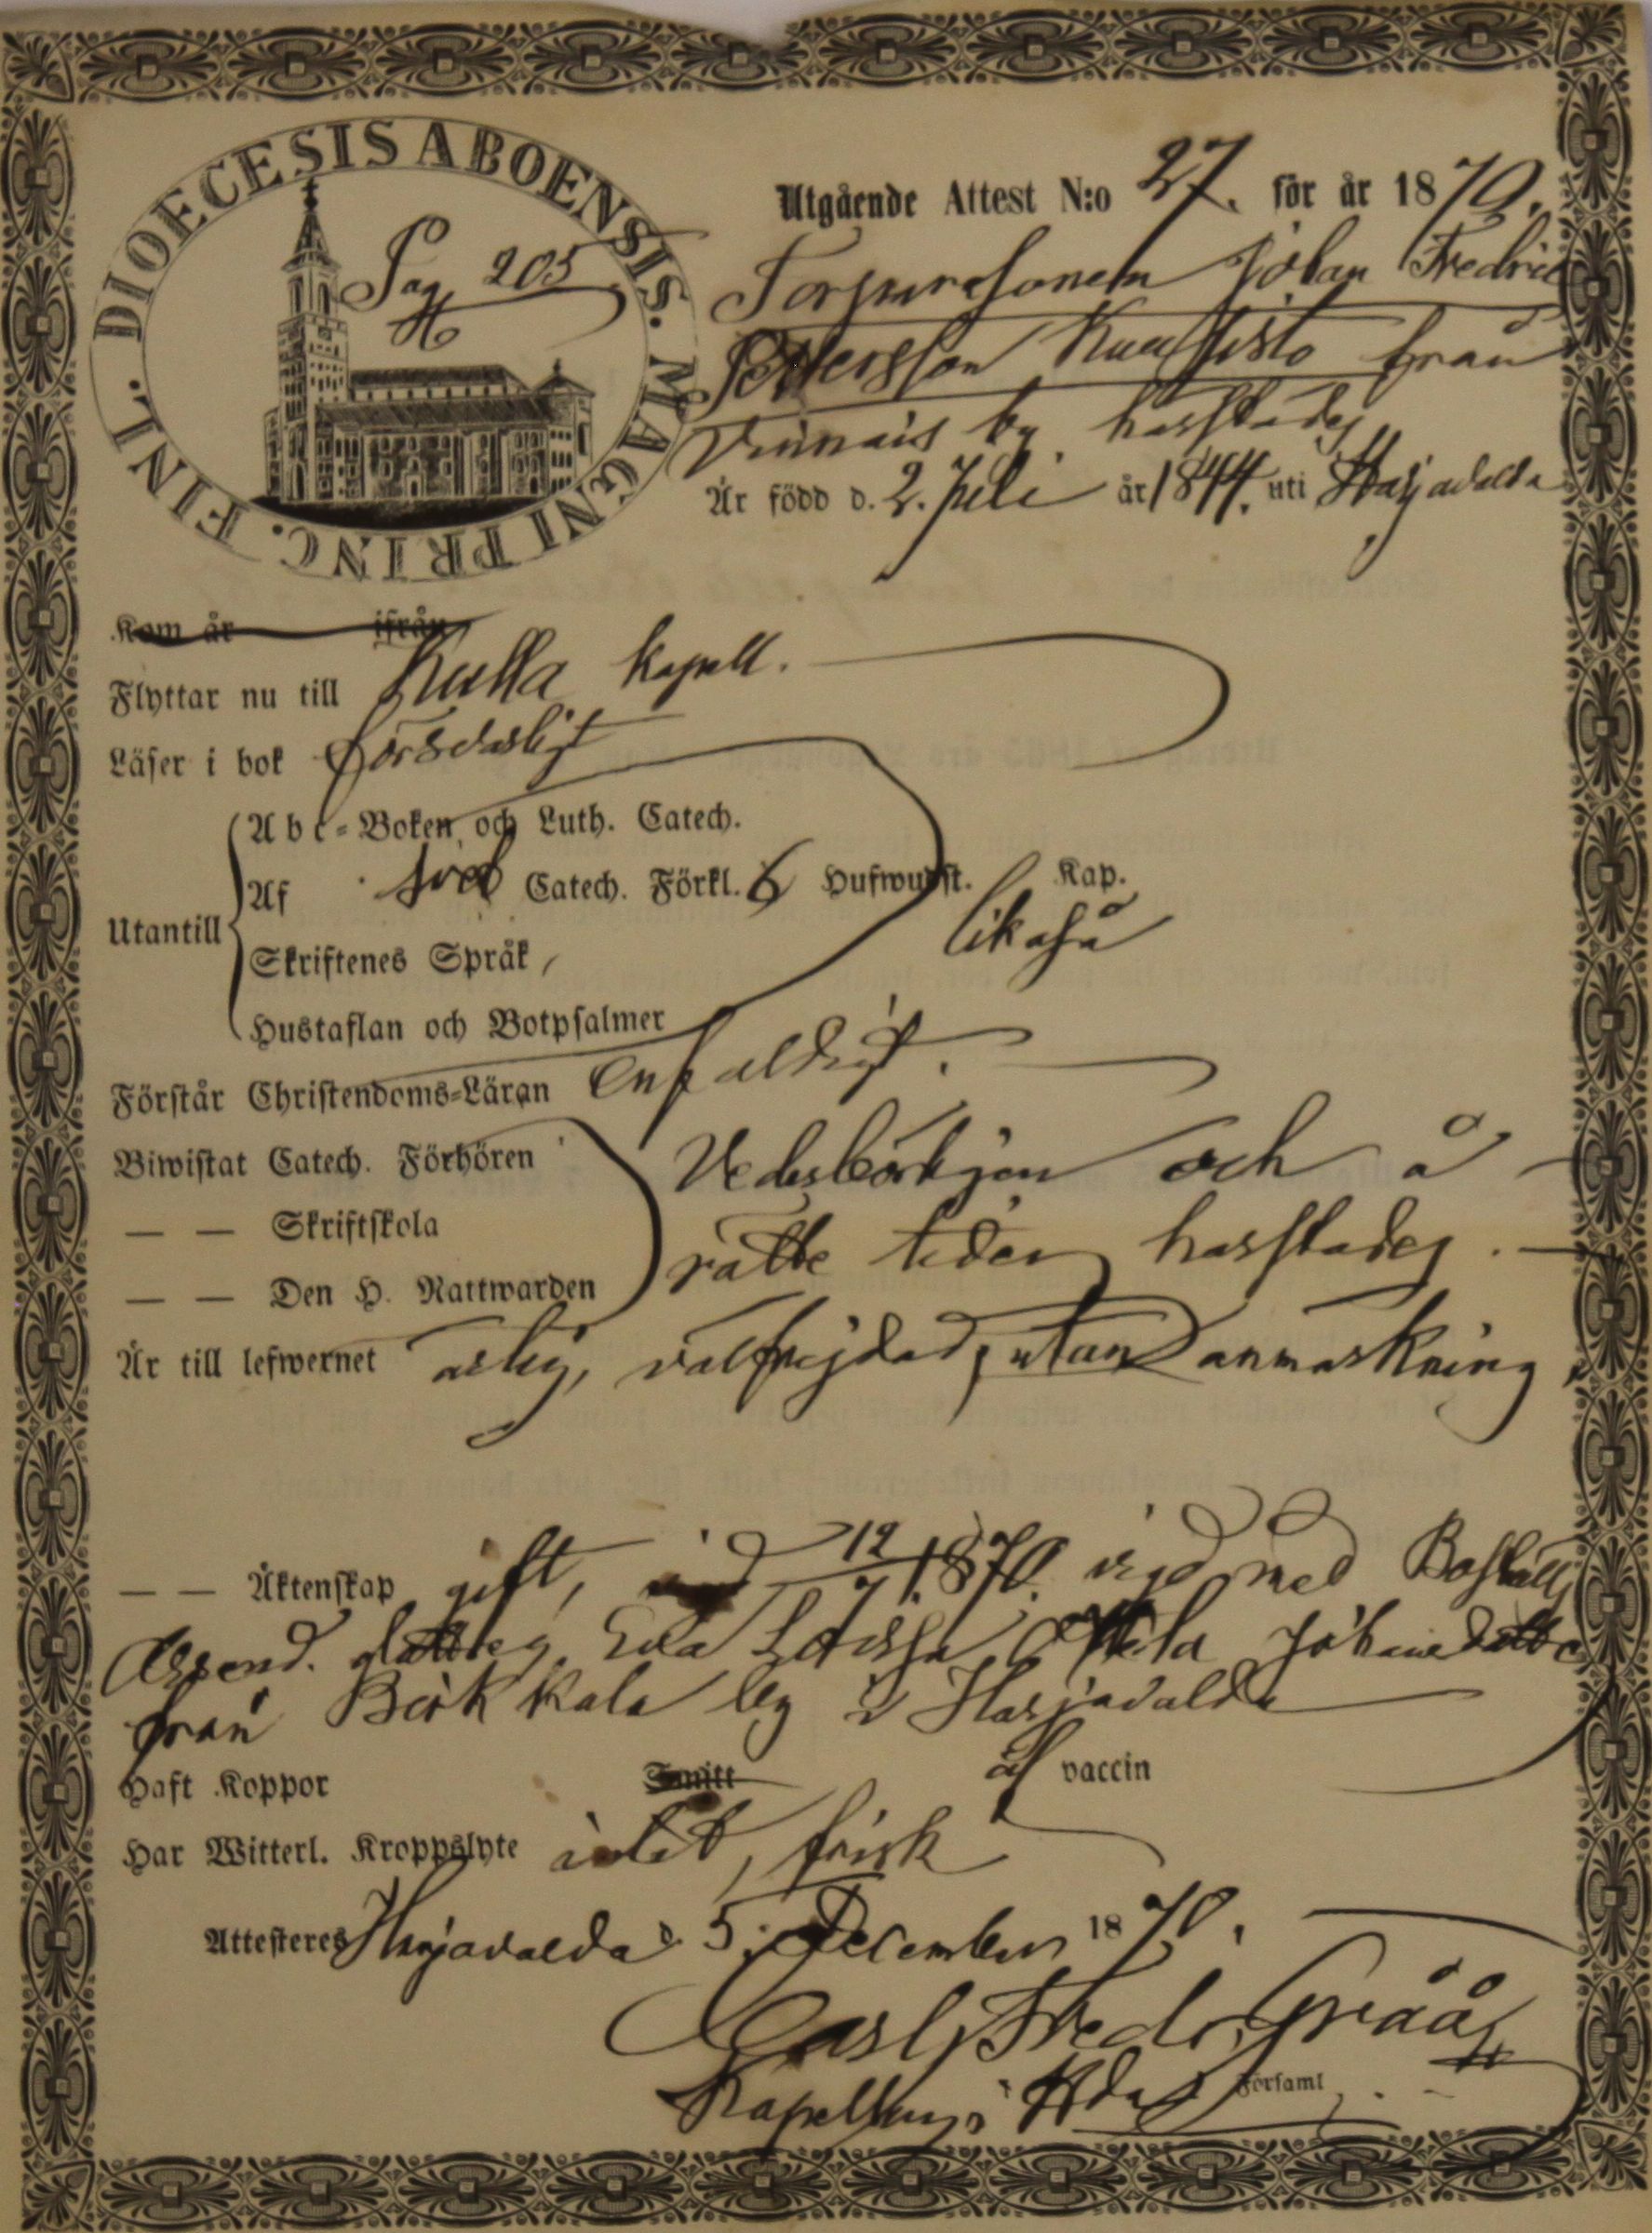 DIOECESIS ABOENSIS. MAGNI PRINC. FINL.
Pag 205
Utgående Attest N:o 27. för år 1870.
Torparesonen Johan Fredric
Pettersson Kuusisto från
by härstädes
Är född d. 2. Juli år 1844. uti Harjavalda
Kom år ifrån
Flyttar nu till Kulla Kapell.
Läser i bok försvarligt
Abc-Boken och Luth. Catech.
Utantill
Af Sveb Catech. Förkl. 6 Hufwudst. Kap.
likaså
Skriftenes Språk
Hustaflan och Botpsalmer
Förstår Christendoms-Läran enfaldigt.
Biwistat Catech. Förhören Vederbörligen och å
— — Skriftskola
rätte tider härstädes.
— — Den H. Nattwarden
Är till lefwernet ärlig, välfrejdad, utan anmärkning
— — Äktenskap gift, 12/7 1870. vigd med Boställs
Arrend. dotter Eva Lovisa Johansdotter
från by i Harjavalda
Haft Koppor Smitt af vaccin
Har Witterl. Kroppslyte intet, frisk
Attesteres Harjavalda d. 5. December 1870.
Carl Fredr. Grääs
Kapellan i Hda Församl.